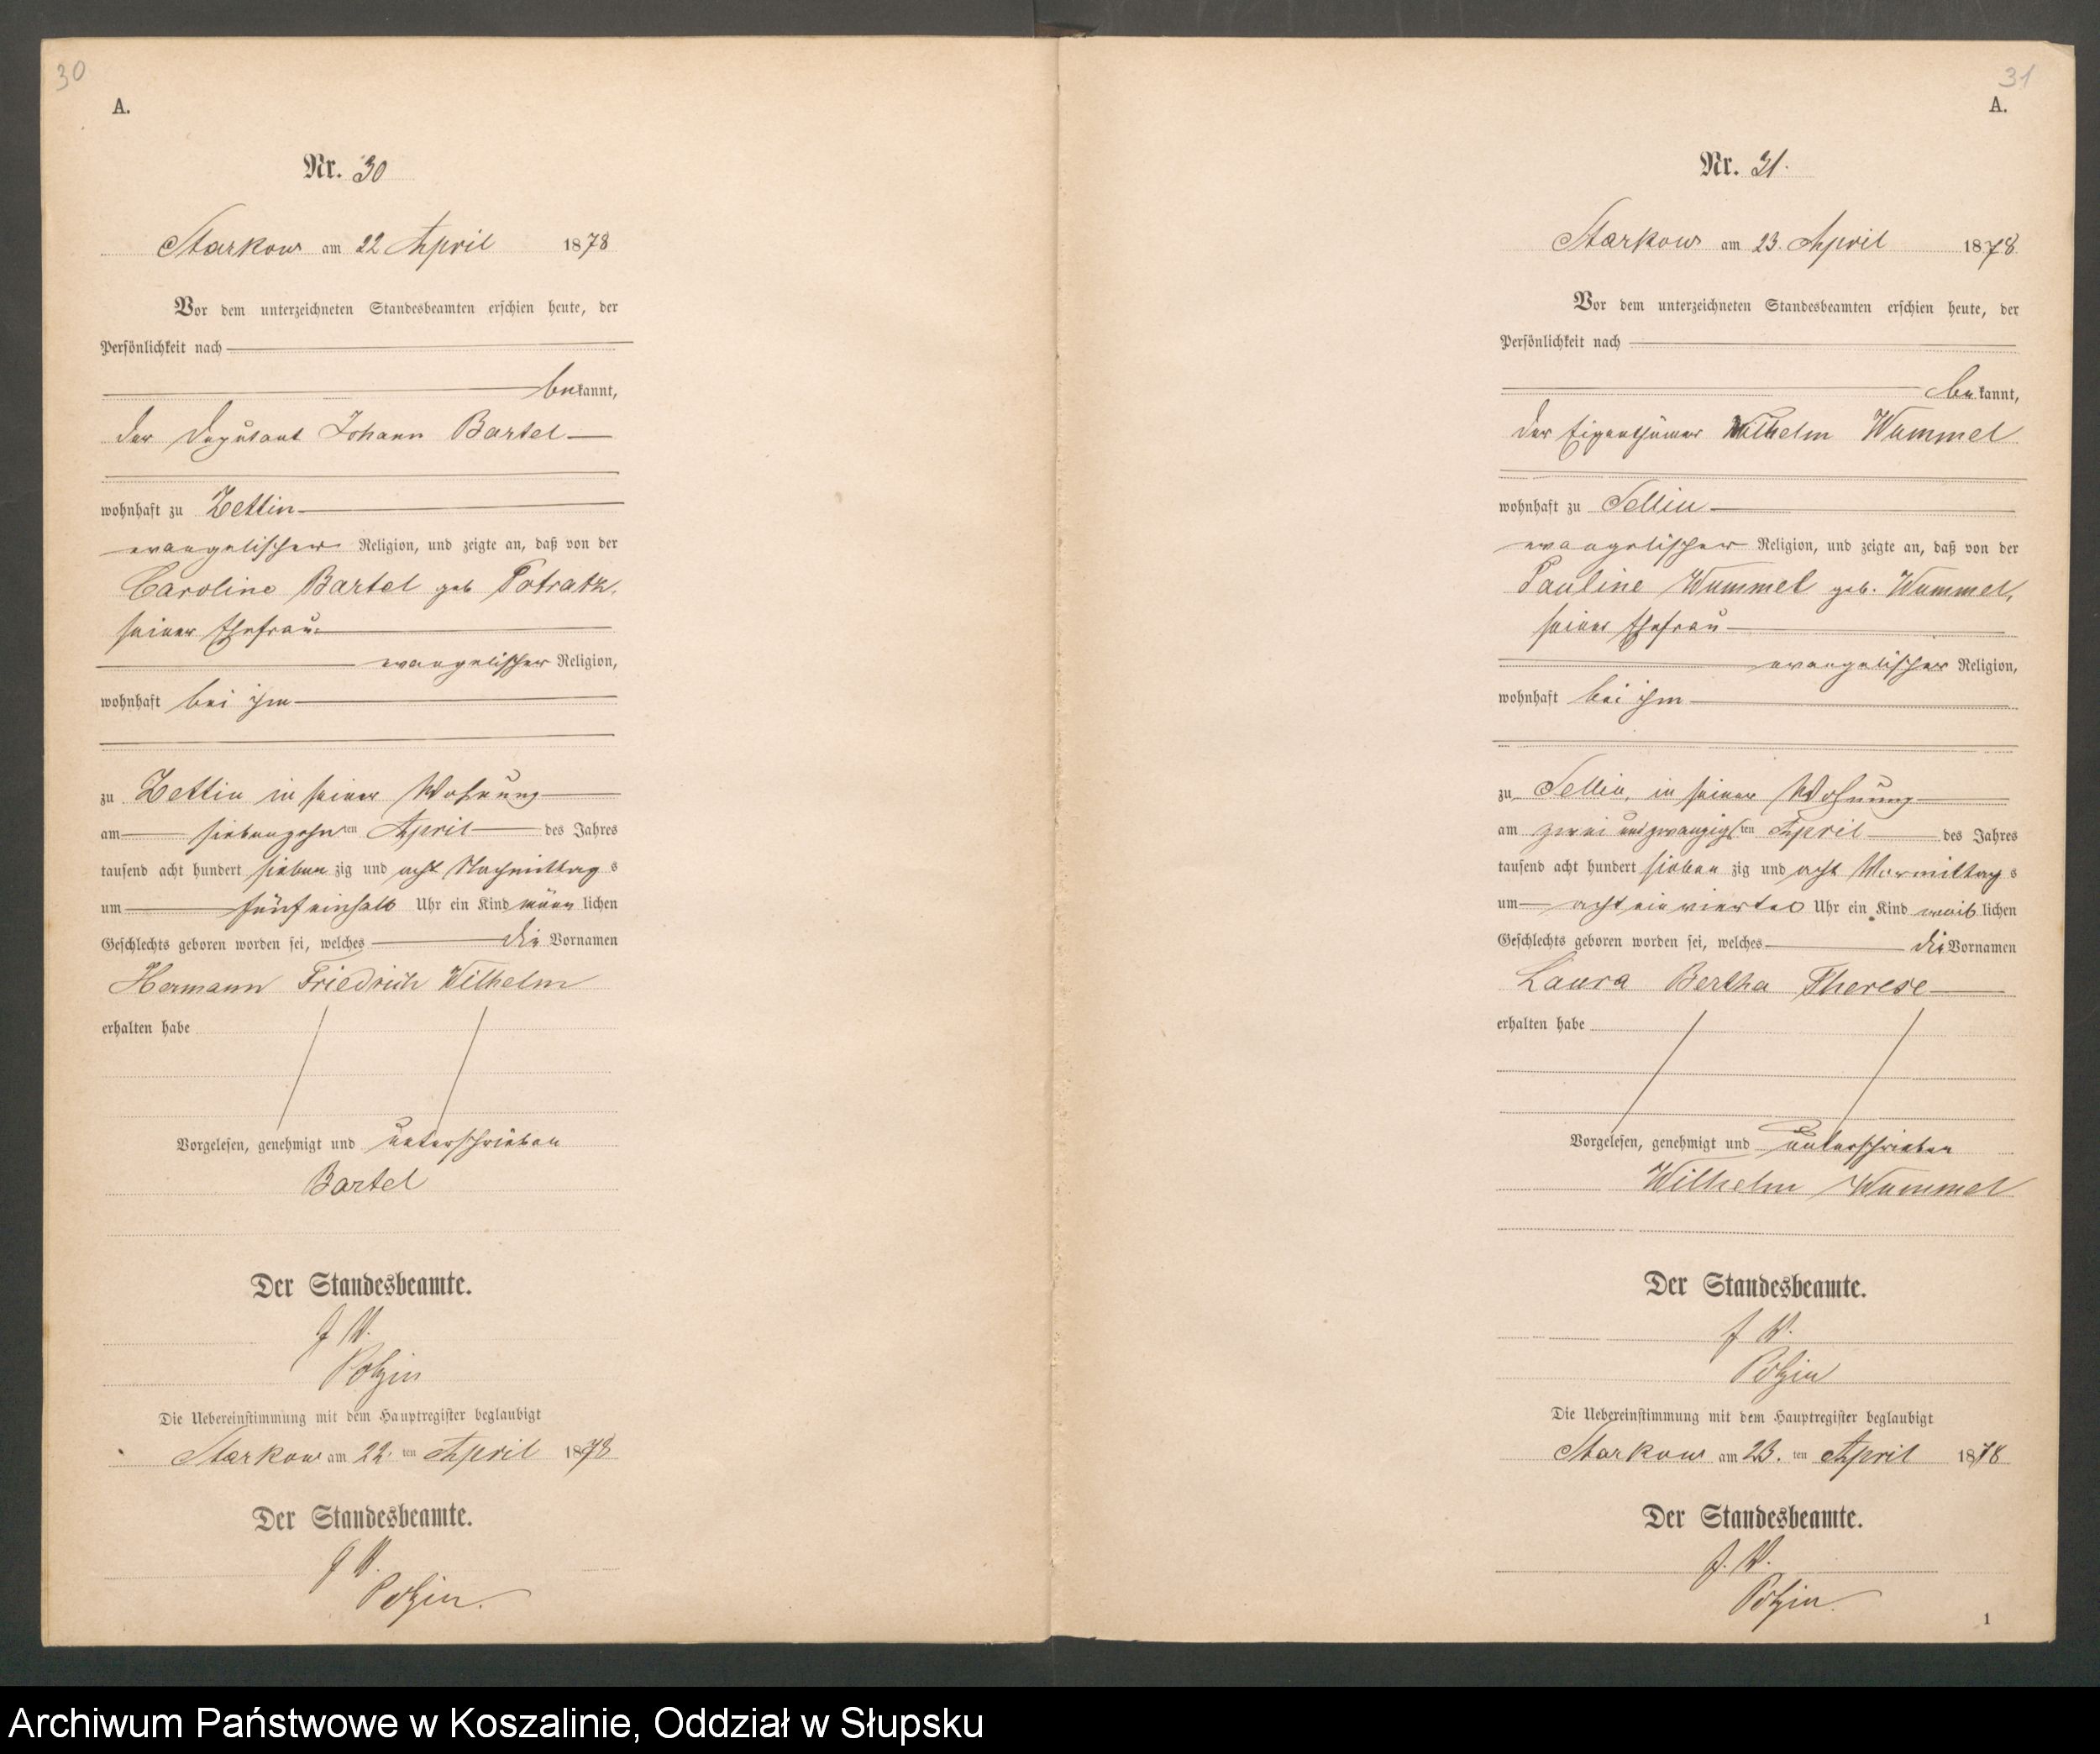 30
A.
Nr. 30
Starkow am 22 April 1878
Vor dem unterzeichneten Standesbeamten erschien heute, der
Persönlichkeit nach
bekannt,
der Deputant Johann Bartel
wohnhaft zu Zettin
evangelischer Religion, und zeigte an, daß von der
Caroline Bartel geb Potratz,
seiner Ehefrau
evangelischer Religion,
wohnhaft bei ihm
zu Zettin in seiner Wohnung
am siebenzehnten April des Jahres
tausend acht hundert siebenzig und acht Nachmittags
um fünf einhalb Uhr ein Kind männlichen
Geschlechts geboren worden sei, welches die Vornamen
Hermann Friedrich Wilhelm
erhalten habe
Vorgelesen, genehmigt und unterschrieben
Bartel
Der Standesbeamte.
J V.
Polzin
Die Uebereinstimmung mit dem Hauptregister beglaubigt
Starkow am 22. ten April 1878
Der Standesbeamte.
J V.
Polzin.
31
A.
Nr. 31.
Starkow am 23. April 1878.
Vor dem unterzeichneten Standesbeamten erschien heute, der
Persönlichkeit nach
bekannt,
der Eigenthümer Wilhelm Wummel
wohnhaft zu Sellin
evangelischer Religion, und zeigte an, daß von der
Pauline Wummel geb. Wummel,
seiner Ehefrau
evangelischer Religion,
wohnhaft bei ihm
zu Sellin, in seiner Wohnung
am zwei und zwanzigsten April des Jahres
tausend acht hundert siebenzig und acht Vormittags
um acht ein viertel Uhr ein Kind weiblichen
Geschlechts geboren worden sei, welches die Vornamen
Laura Bertha Therese
erhalten habe
Vorgelesen, genehmigt und unterschrieben
Wilhelm Wummel
Der Standesbeamte.
J V.
Polzin
Die Uebereinstimmung mit dem Hauptregister beglaubigt
Starkow am 23. ten April 1878
Der Standesbeamte.
J. V.
Polzin.
1
Archiwum Państwowe w Koszalinie, Oddział w Słupsku